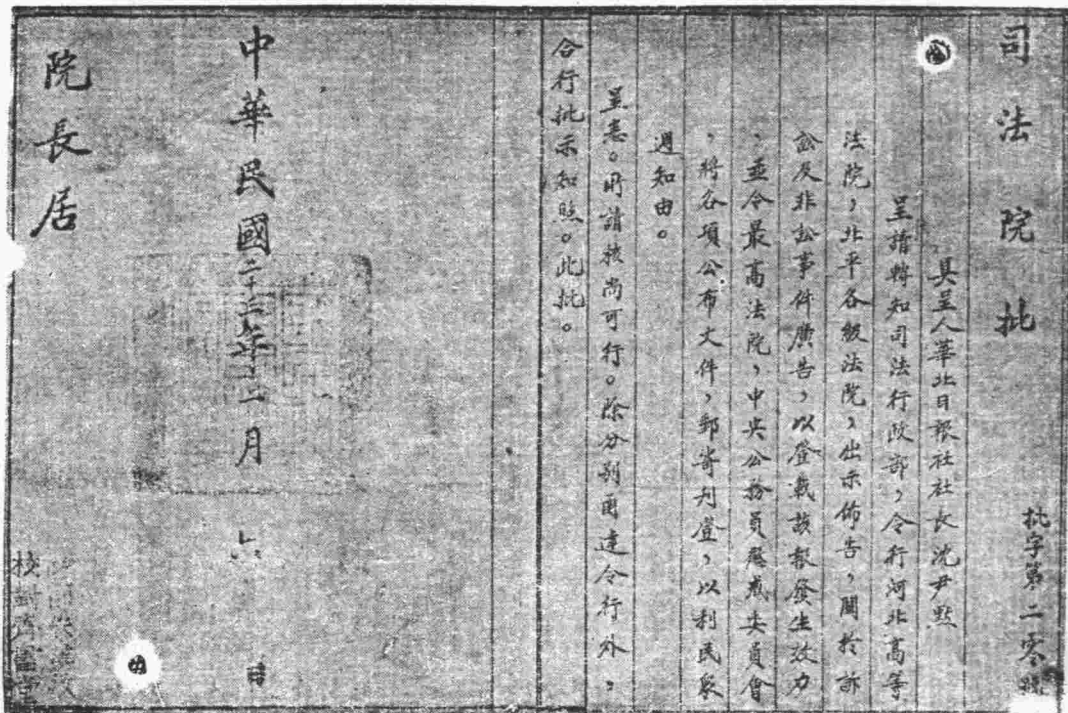 司法院批
批字第二零號
具呈人華北日報社社長沈尹默
呈請轉知司法行政部，令行河北高等
法院，北平各級法院，出示佈告，關於訴
訟及非訟事件廣告，以登載該報發生效力
，並令最高法院，中央公務員懲戒委員會
，將各項公布文件，郵寄刊登，以利民衆
週知由。
呈悉。所請核尚可行。除分別函達令行外，
合行批示知照。此批。
中華民國二十二年十二月六
院長居
校對